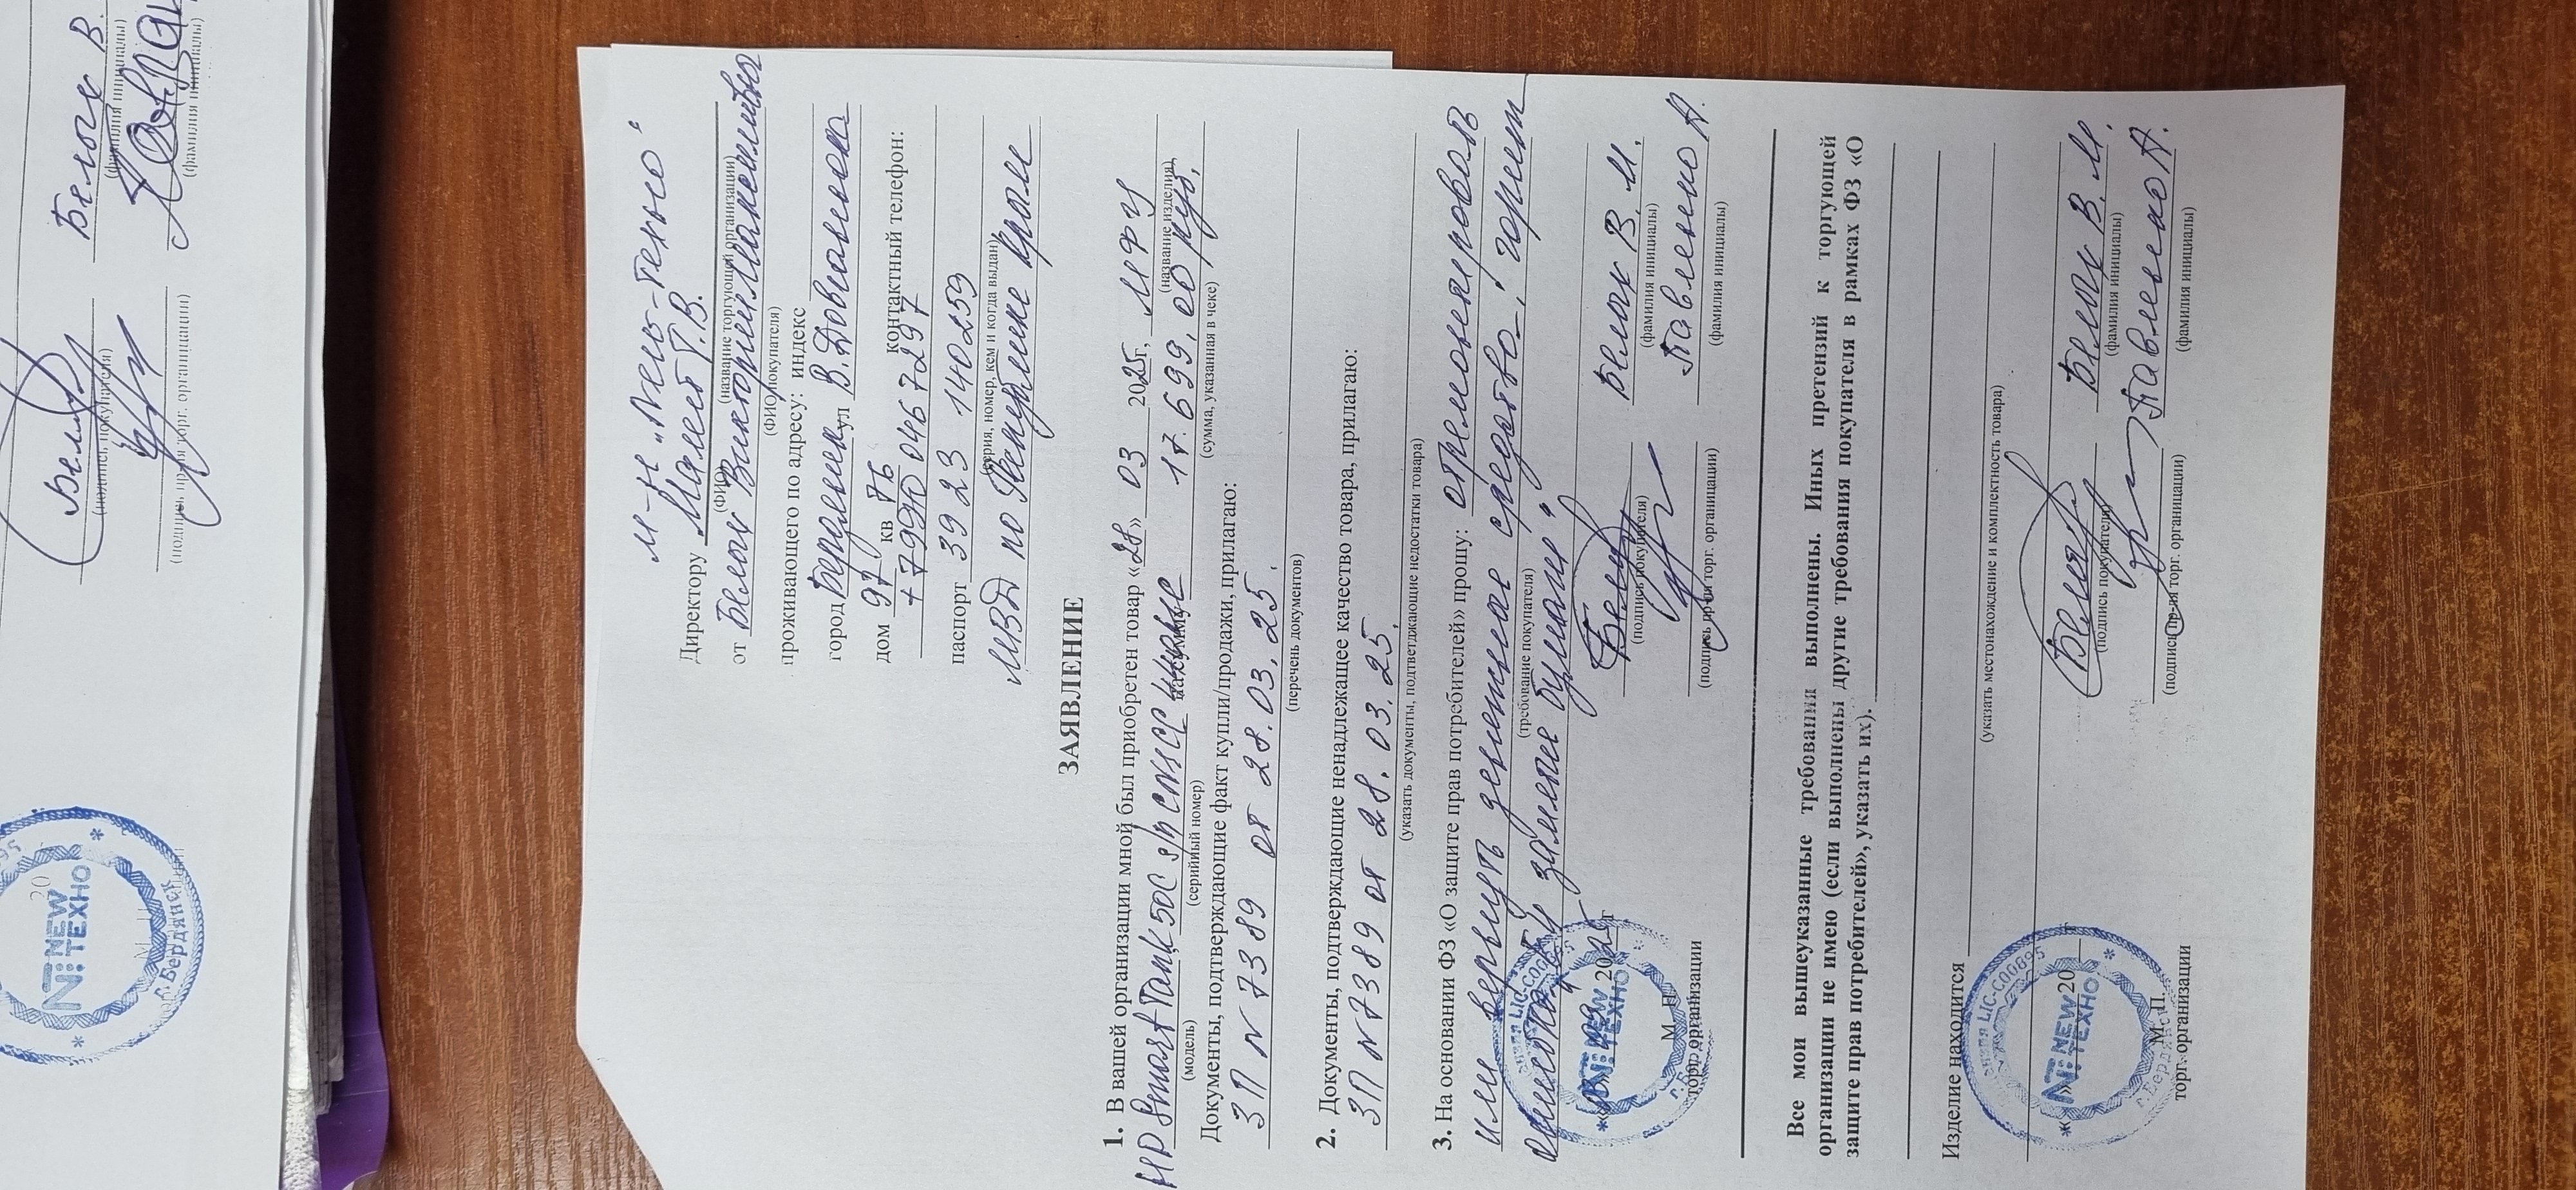 м-н „Нью-Техно"
Директору Малеев Г.В.
(ФИО) (название торгующей организации)
от Белых Виктории Максимовны
(ФИО покупателя)
проживающего по адресу: индекс
город Бердянск ул В. Довганюка
дом 97 кв 76 контактный телефон:
+7990 046 7297
паспорт 3923 140259
(серия, номер, кем и когда выдан)
МВД по Запорожье
ЗАЯВЛЕНИЕ
1. В вашей организации мной был приобретен товар «28» 03 2025г, МФУ
(название изделия)
HP Smart Tank 50C 17.699,00 руб.
(модель) (серийный номер) (сумма, указанная в чеке)
Документы, подтверждающие факт купли/продажи, прилагаю:
ЗП N 7389 от 28.03.25.
(перечень документов)
2. Документы, подтверждающие ненадлежащее качество товара, прилагаю:
ЗП N 7389 от 28.03.25.
(указать документы, подтверждающие недостатки товара)
3. На основании ФЗ «О защите прав потребителей» прошу: отремонтировать
или вернуть денежные средства
(требование покупателя)
замятие бумаги"
Белых В. М.
(подпись покупателя) (фамилия инициалы)
20 г
Павленко А.
М П
торг организации (подпись пр-ля торг. организации) (фамилия инициалы)
Все мои вышеуказанные требования выполнены. Иных претензий к торгующей
организации не имею (если выполнены другие требования покупателя в рамках ФЗ «О
защите прав потребителей», указать их).
Изделие находится
(указать местонахождение и комплектность товара)
Белых В. М.
(подпись покупателя) (фамилия инициалы)
« » 20 г
Павленко А.
М П.
торг. организации (подпись пр-ля торг. организации) (фамилия инициалы)
LIC-C00895
NT: NEW ТЕХНО
г. Бердянск
Белых В.
(подпись покупателя) (фамилия инициалы)
(подпись пр-ля торг. организации) (фамилия инициалы)
20
NT: NEW ТЕХНО
г. Бердянск